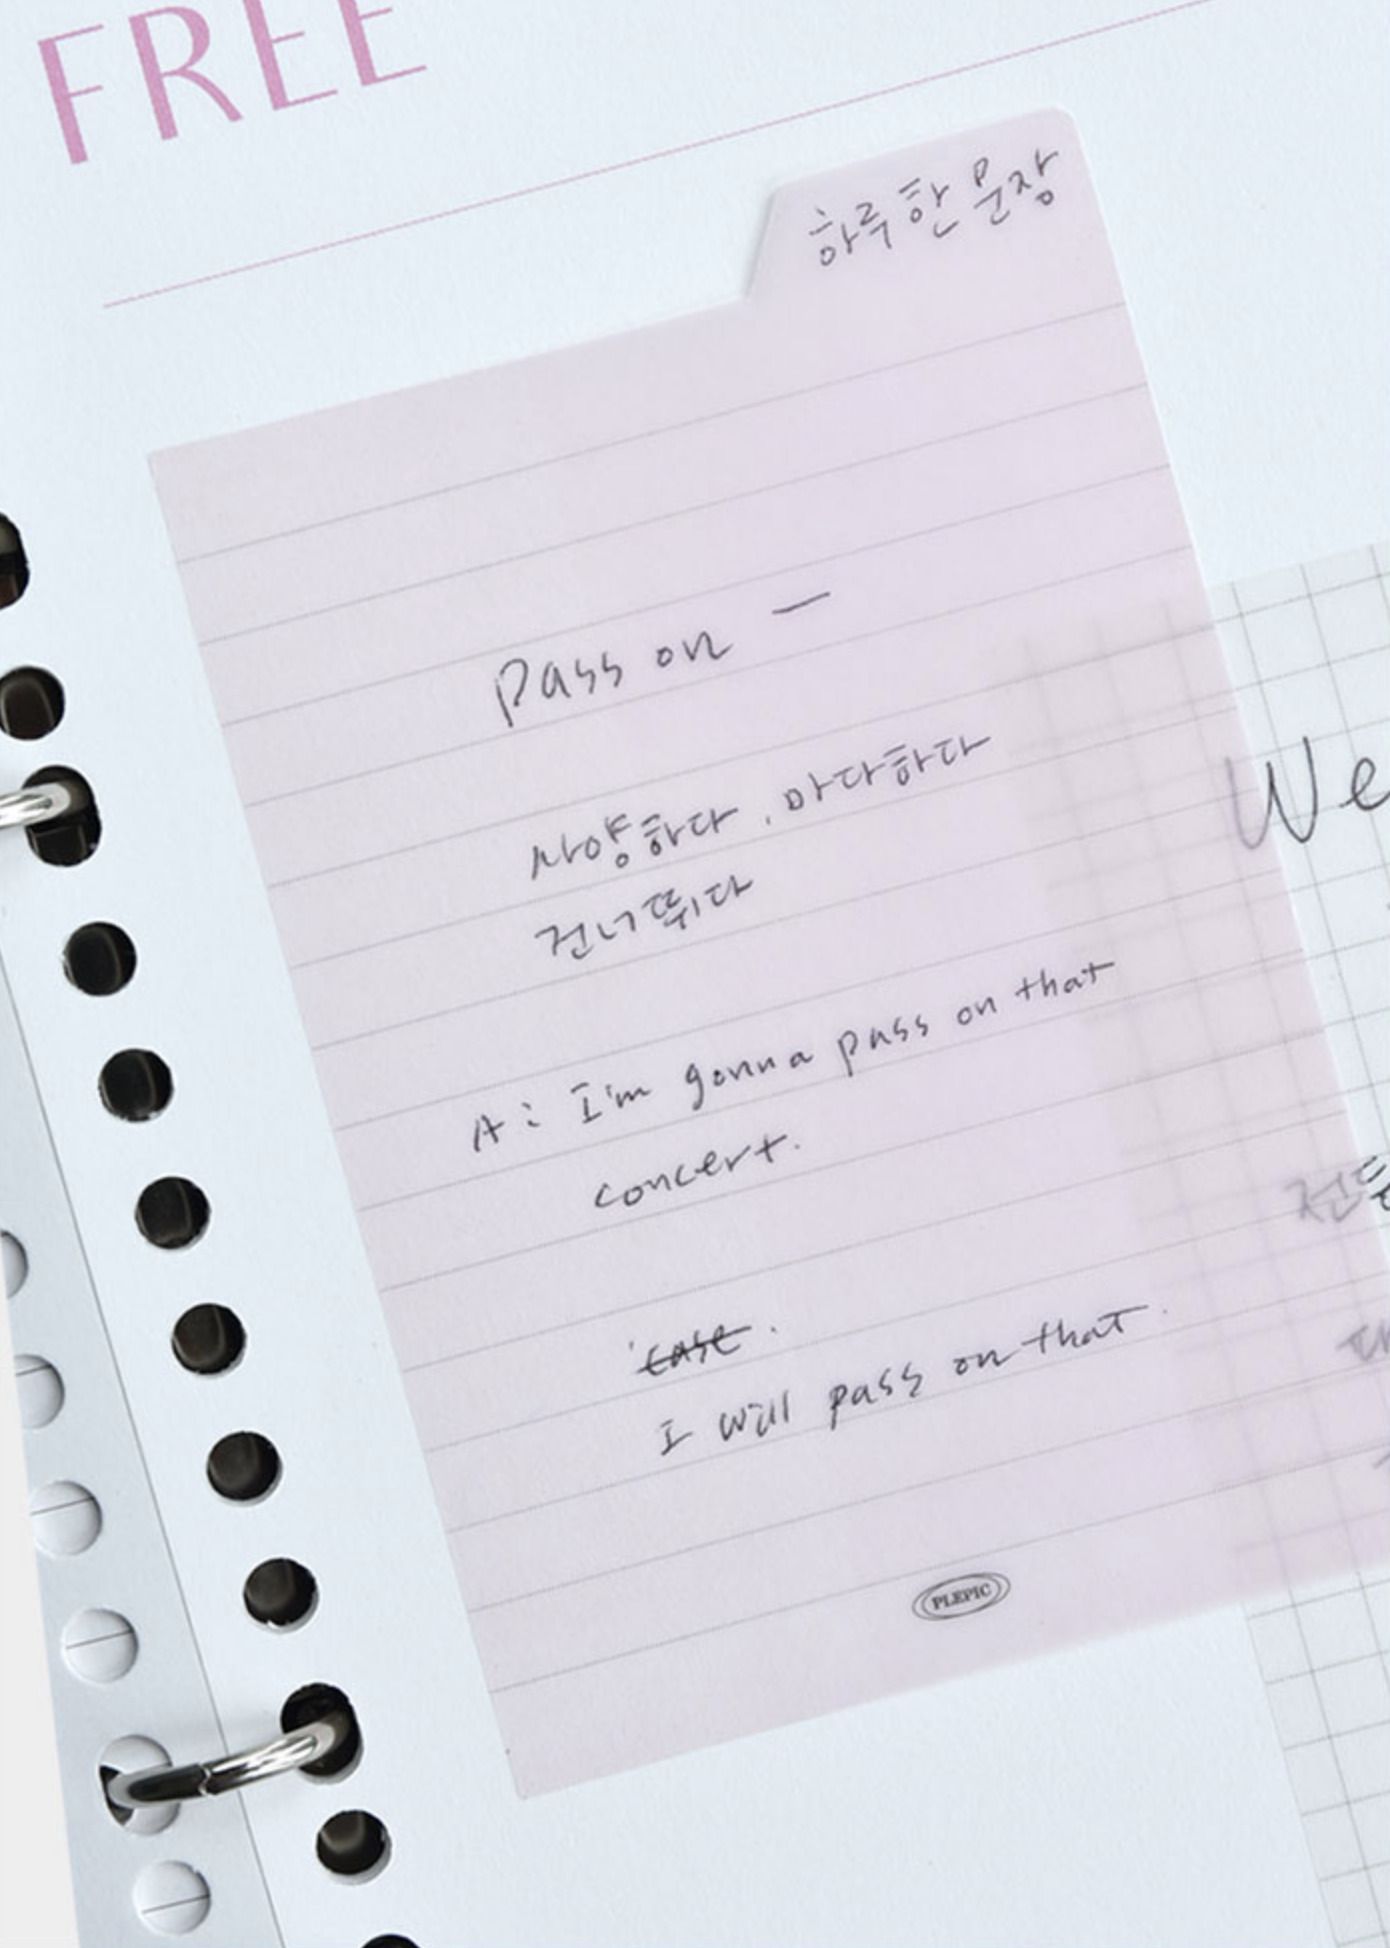 FREE
하루 한 문장
Pass on —
사양하다, 마다하다
건너뛰다
A: I'm gonna pass on that
concert.
case.
I will pass on that.
PLEPIC
We